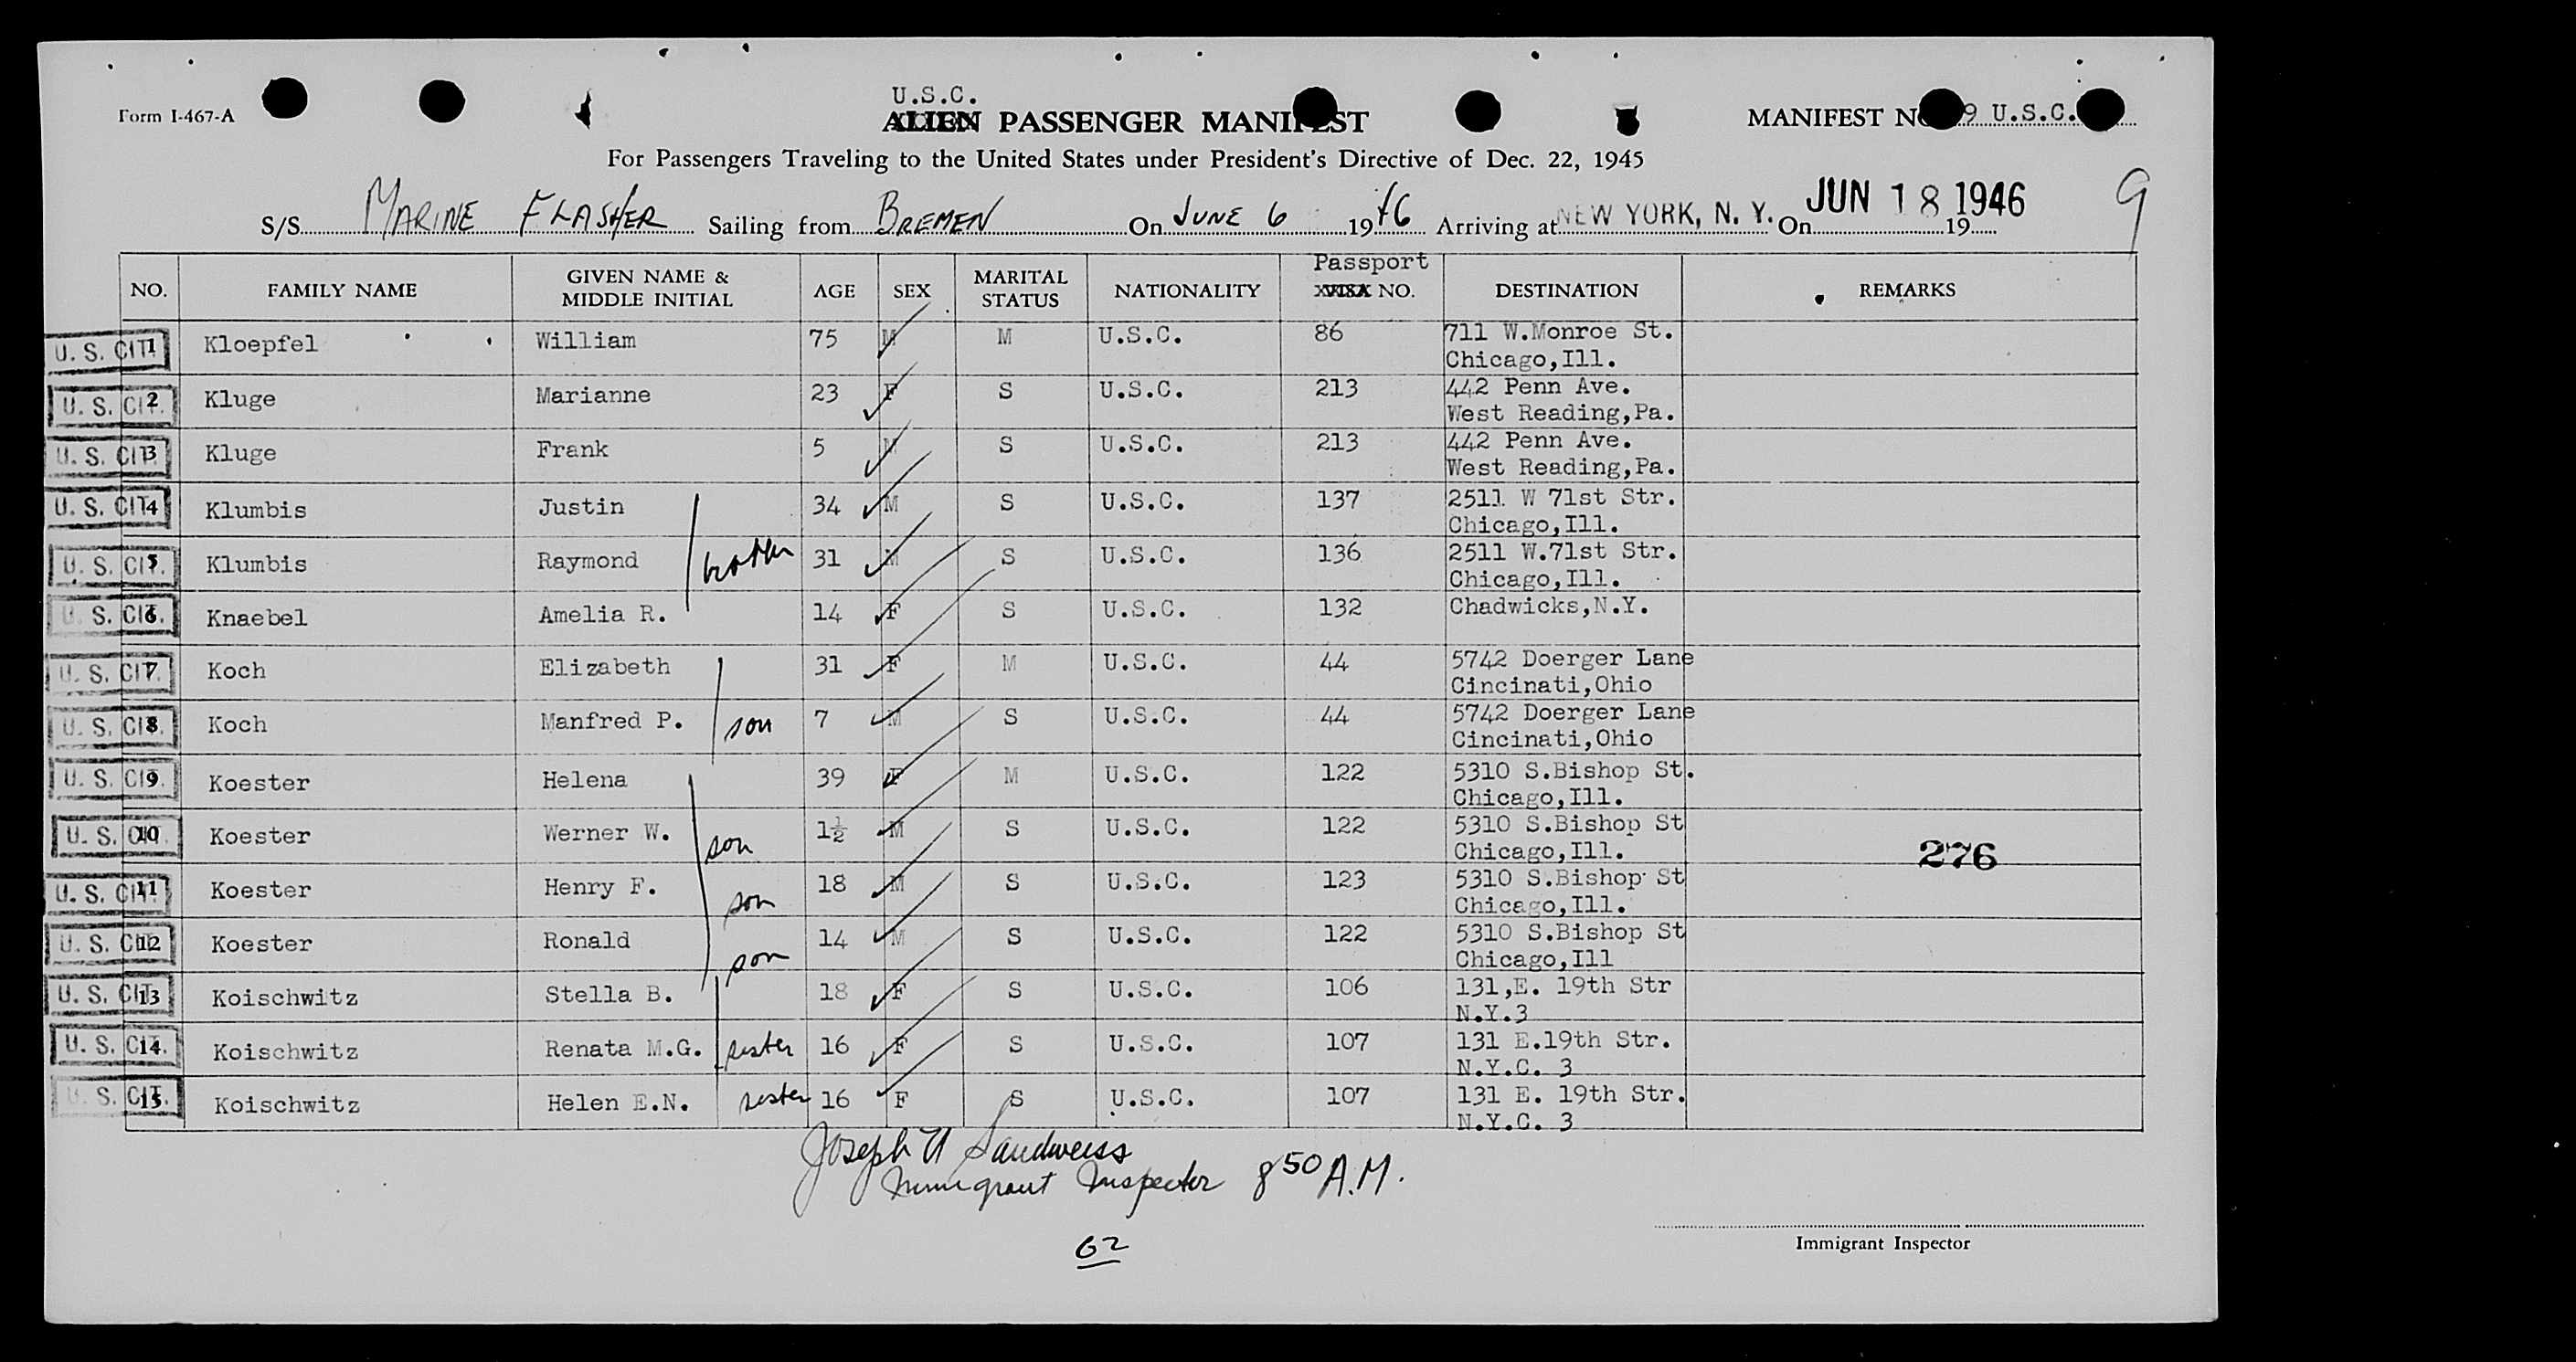 Form I-467-A
U.S.C.
ALIEN PASSENGER MANIFEST
MANIFEST NO. 9 U.S.C.
For Passengers Traveling to the United States under President's Directive of Dec. 22, 1945
9
S/S MARINE FLASHER Sailing from BREMEN On JUNE 6 1946 Arriving at NEW YORK, N. Y. On JUN 18 1946 19
NO. FAMILY NAME GIVEN NAME & MIDDLE INITIAL AGE SEX MARITAL STATUS NATIONALITY Passport VISA NO. DESTINATION REMARKS
U. S. CIT. 1 Kloepfel William 75 M M U.S.C. 86 711 W.Monroe St.
Chicago,Ill.
U. S. CIT. 2 Kluge Marianne 23 F S U.S.C. 213 442 Penn Ave.
West Reading,Pa.
U. S. CIT. 3 Kluge Frank 5 M S U.S.C. 213 442 Penn Ave.
West Reading,Pa.
U. S. CIT. 4 Klumbis Justin 34 M S U.S.C. 137 2511 W 71st Str.
Chicago,Ill.
U. S. CIT. 5 Klumbis Raymond brother 31 M S U.S.C. 136 2511 W.71st Str.
Chicago,Ill.
U. S. CIT. 6 Knaebel Amelia R. 14 F S U.S.C. 132 Chadwicks,N.Y.
U. S. CIT. 7 Koch Elizabeth 31 F M U.S.C. 44 5742 Doerger Lane
Cincinati,Ohio
U. S. CIT. 8 Koch Manfred P. son 7 M S U.S.C. 44 5742 Doerger Lane
Cincinati,Ohio
U. S. CIT. 9 Koester Helena 39 F M U.S.C. 122 5310 S.Bishop St.
Chicago,Ill.
U. S. CIT. 10 Koester Werner W. son 1½ M S U.S.C. 122 5310 S.Bishop St
Chicago,Ill.
276
U. S. CIT. 11 Koester Henry F. son 18 M S U.S.C. 123 5310 S.Bishop St
Chicago,Ill.
U. S. CIT. 12 Koester Ronald son 14 M S U.S.C. 122 5310 S.Bishop St
Chicago,Ill
U. S. CIT. 13 Koischwitz Stella B. 18 F S U.S.C. 106 131,E. 19th Str
N.Y.3
U. S. CIT. 14. Koischwitz Renata M.G. sister 16 F S U.S.C. 107 131 E.19th Str.
N.Y.C. 3
U. S. CIT. 15 Koischwitz Helen E.N. sister 16 F S U.S.C. 107 131 E. 19th Str.
N.Y.C. 3
Joseph Sandweiss
Immigrant Inspector 8 50 A.M.
62
Immigrant Inspector